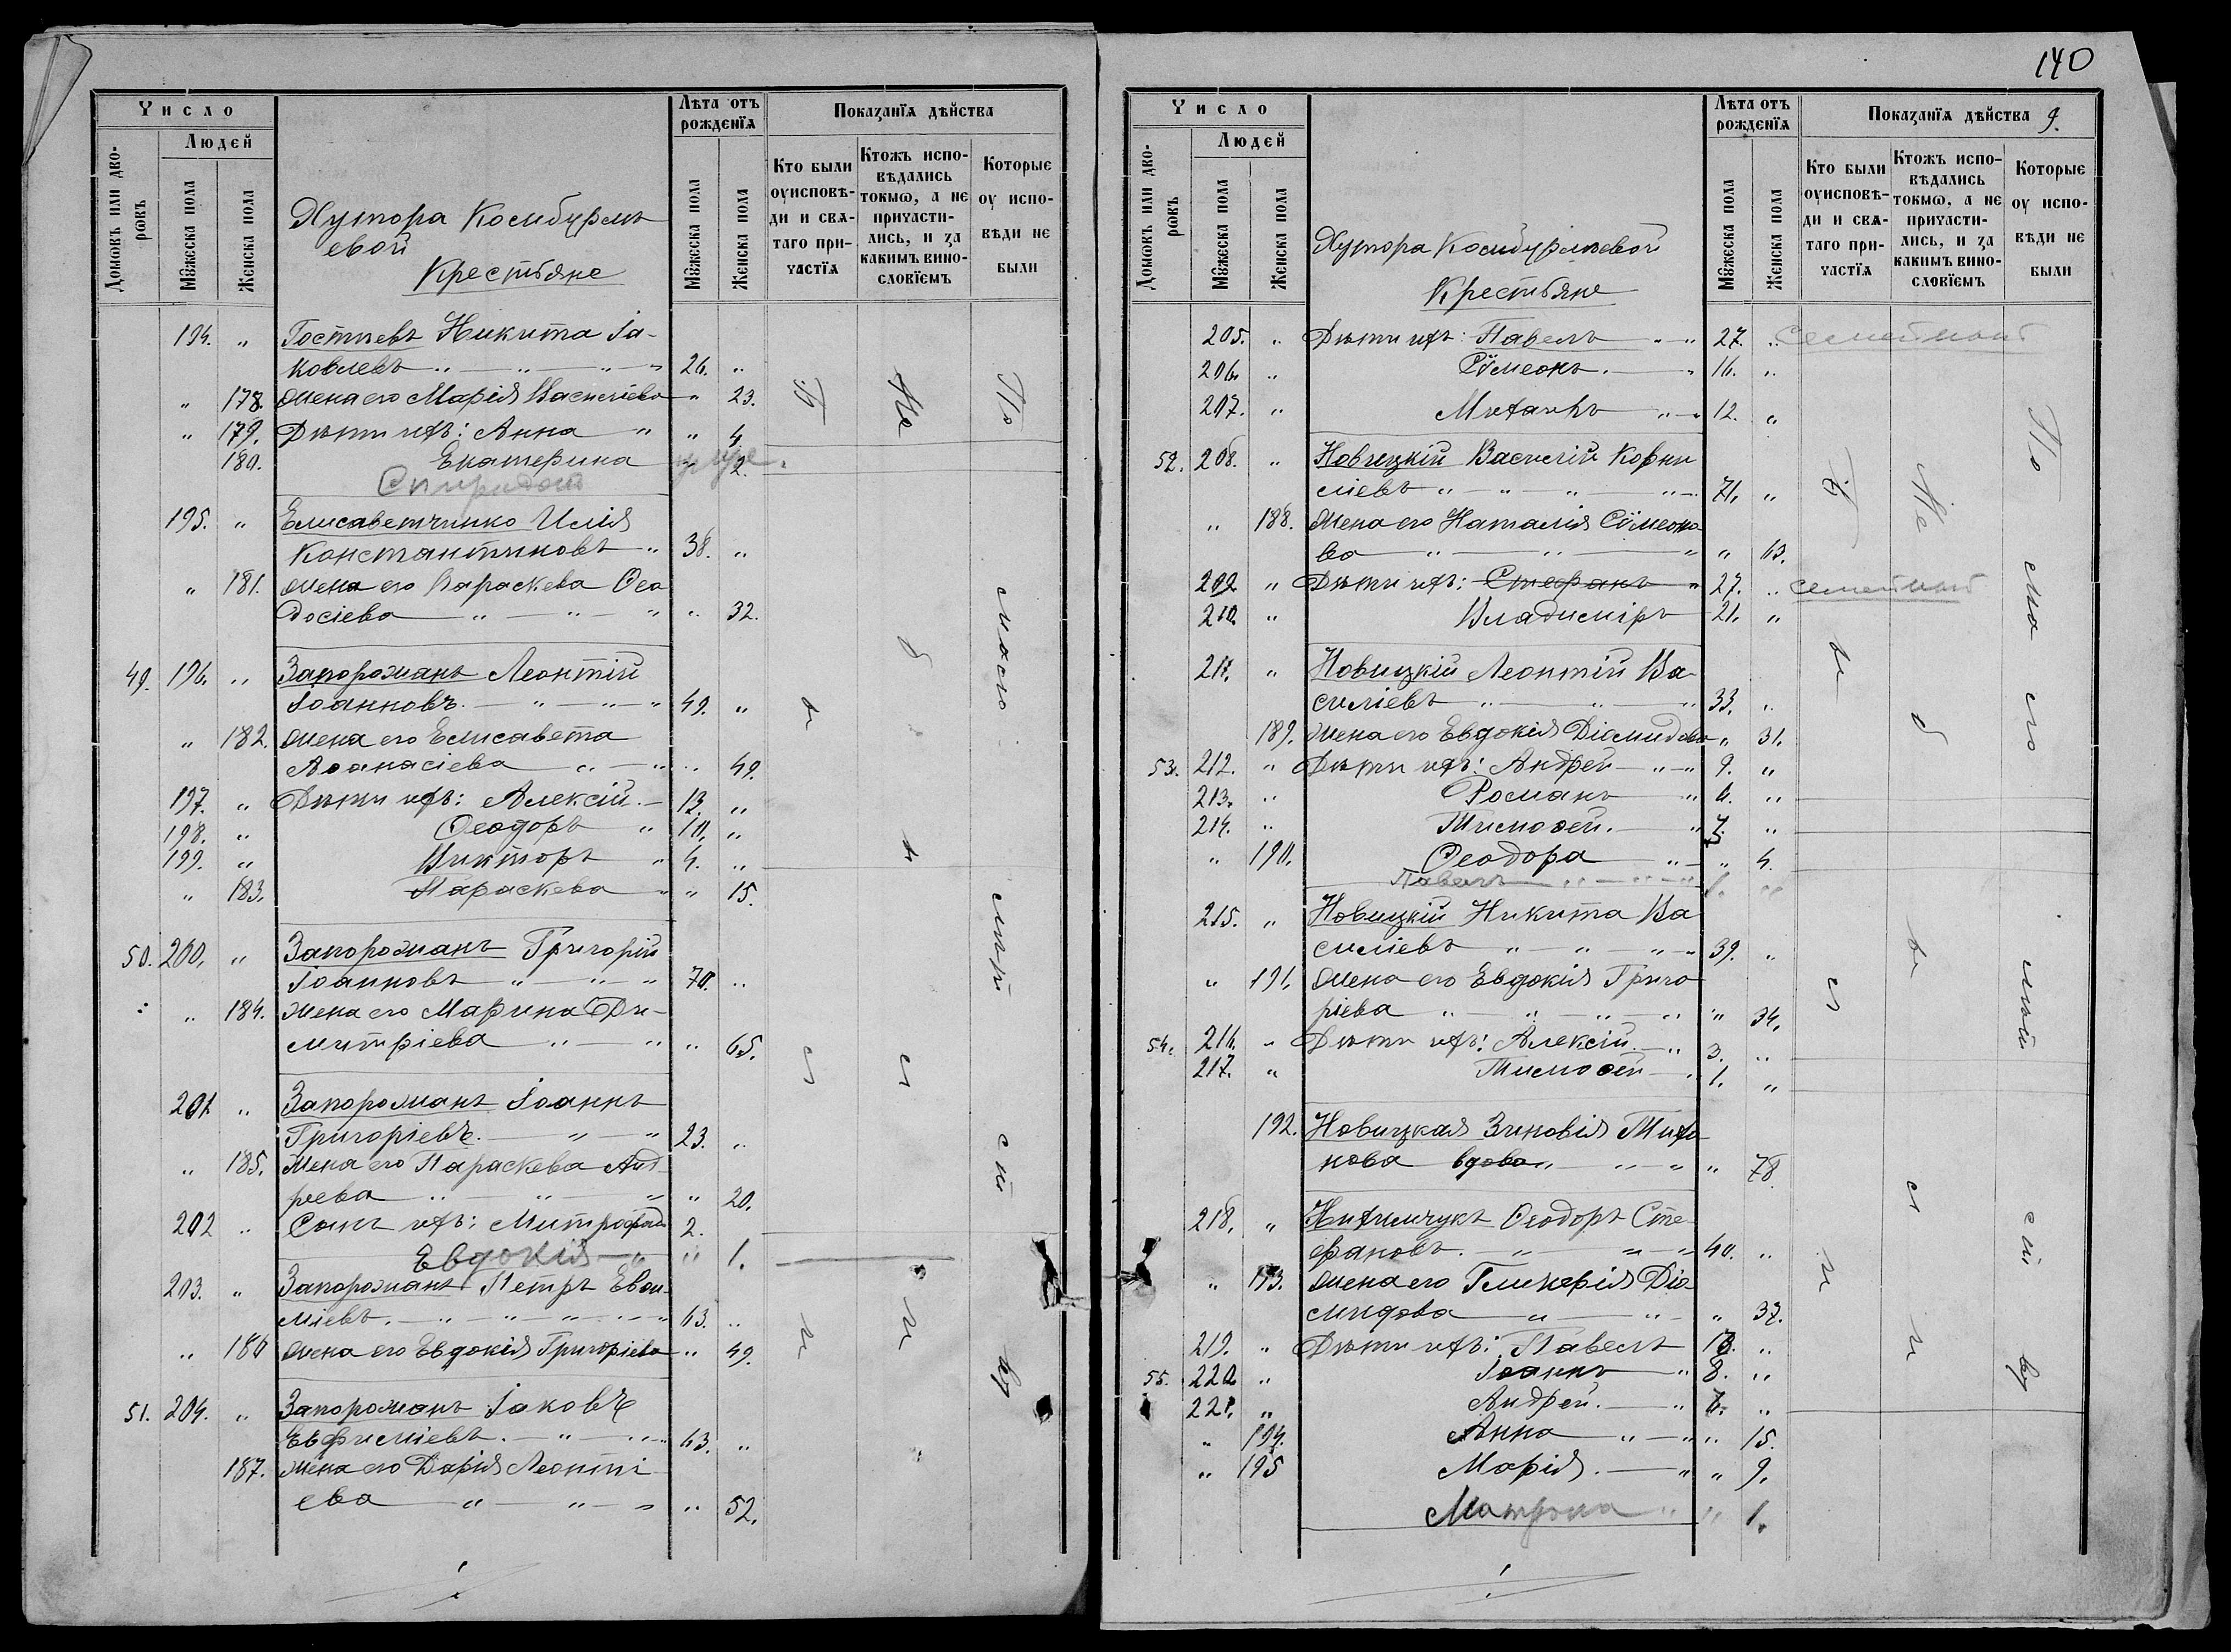 140
Число
Людей
Домовъ или дво-
рѡвъ
Мꙋжеска пола
Женска пола
Хутора Комбурле
евой
Крестьяне
Лѣта отъ
рожденїѧ
Мꙋжеска пола
Женска пола
Показанїѧ дѣйства
Кто были
оуисповѣ-
ди и свѧ-
таго при-
частїѧ
Ктожъ испо-
вѣдались
токмѡ, а не
причасти-
лись, и за
какимъ вино-
словїемъ
Которые
оу испо-
вѣди не
были
194. " Гостищевъ Никита Іа-
ковлевъ 26. "
" 178. Жена его Марія Василіева " 23.
" 179. Дѣти ихъ: Анна " 4.
180. Екатерина 2.
Спиридонъ
195. " Елисаветченко Илія
Константиновъ " 38. "
" 181. Жена его Параскева Ѳео
досіева " 32.
49. 196. " Запорожанъ Леонтій
Іоанновъ 49. "
" 182. Жена его Елисавета
Аѳанасіева " 49.
197. " Дѣти ихъ: Алексій 13. "
198. " Ѳеодоръ " 10. "
199. " Викторъ " 4. "
" 183. Параскева " 15.
50. 200. " Запорожанъ Григорій
Іоанновъ 70. "
" 184. Жена его Марина Ди-
митріева " 65.
201 " Запорожанъ Іоаннъ
Григоріевъ 23. "
" 185. Жена его Параскева Анд
реева " 20.
202 " Сынъ ихъ: Митрофанъ 2.
Евдокія " 1.
203. " Запорожанъ Петръ Евѳи
міевъ 63. "
" 186 Жена его Евдокія Григоріева " 49.
51. 204. " Запорожанъ Іаковъ
Евфиміевъ 63. "
187. Жена его Дарія Леонті
ева " 52.
Бы ли
Не бы ли
По мало
Число
Людей
Домовъ или дво-
рѡвъ
Мꙋжеска пола
Женска пола
Хутора Комбурлеевой
Крестьяне
Лѣта отъ
рожденїѧ
Мꙋжеска пола
Женска пола
Показанїѧ дѣйства 9.
Кто были
оуисповѣ-
ди и свѧ-
таго при-
частїѧ
Ктожъ испо-
вѣдались
токмѡ, а не
причасти-
лись, и за
какимъ вино-
словїемъ
Которые
оу испо-
вѣди не
были
205. " Дѣти ихъ: Павелъ 27. " семейный
206. " Сѵмеонъ 16. "
207. " Михаилъ 12. "
52. 208. " Новицкій Василій Корни
ліевъ 71. "
" 188. Жена его Наталія Сѵмеоно
ва " 63.
209. " Дѣти ихъ: Стефанъ " 27. " семейный
210. " Владиміръ 21. "
211. " Новицкій Леонтій Ва-
силіевъ 33. "
189. Жена его Евдокія Діомидова " 31.
53. 212. " Дѣти ихъ: Андрей 9. "
213. " Романъ 6. "
214. " Тимоѳей
" 190. Ѳеодора " 4.
Павелъ 1. "
215. " Новицкій Никита Ва
силіевъ 39. "
" 191. Жена его Евдокія Григо
ріева " 34.
54. 216. " Дѣти ихъ: Алексій 3. "
217. " Тимоѳей 1. "
192. Новицкая Зиновія Миха
нова вдова " 78.
218. " Ѳеодоръ Сте
фановъ 40. "
" 193. Жена его Гликерія Діо
мидова " 37.
219. " Дѣти ихъ: Павелъ 13. "
55. 220 " Іоаннъ 8. "
221. " Андрей
" 194. Анна " 15.
" 195 Марія " 9.
Матрона " 1.
Бы ли
Не бы ли